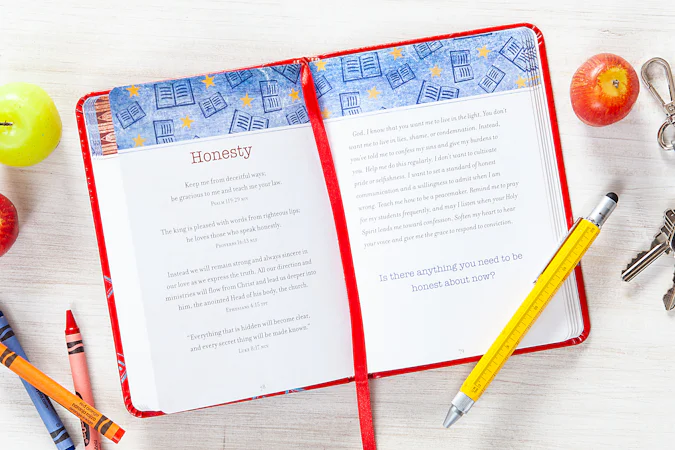 Honesty
Keep me from deceitful ways;
be gracious to me and teach me your law.
Psalm 119:29 NIV
The king is pleased with words from righteous lips;
he loves those who speak honestly.
Proverbs 16:13 NLT
Instead we will remain strong and always sincere in
our love as we express the truth. All our direction and
ministries will flow from Christ and lead us deeper into
him, the anointed Head of his body, the church.
Ephesians 4:15 TPT
"Everything that is hidden will become clear,
and every secret thing will be made known."
Luke 8:17
God, I know that you want me to live in the light. You don't
want me to live in lies, shame, or condemnation. Instead,
you've told me to confess my sins and give my burdens to
you. Help me do this regularly. I don't want to cultivate
pride or selfishness. I want to set a standard of honest
communication and a willingness to admit when I am
wrong. Teach me how to be a peacemaker. Remind me to pray
for my students frequently, and may I listen when your Holy
Spirit leads me toward confession. Soften my heart to hear
your voice and give me the grace to respond to conviction.
Is there anything you need to be
honest about now?